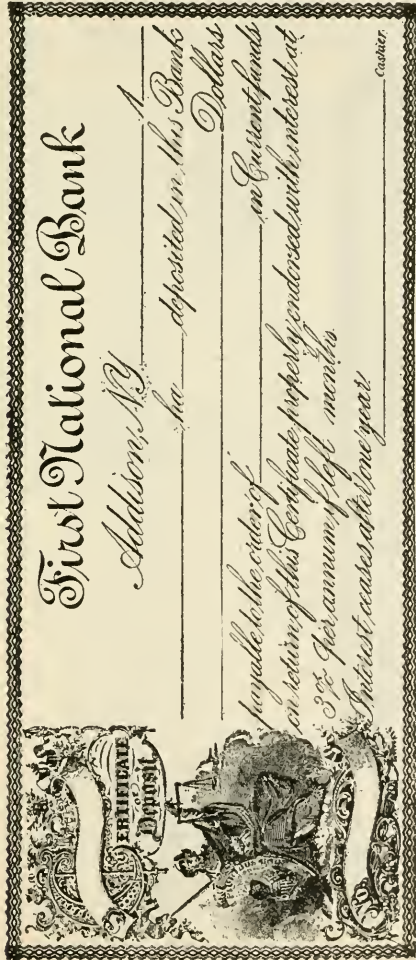 First National Bank
Addison, N.Y. 1
ha deposited in this Bank
Dollars
payable to the order of in Current funds
on return of this Certificate properly endorsed with interest at
3% per annum if left months
Interest ceases after one year.
Cashier.
CERTIFICATE
OF
Deposit